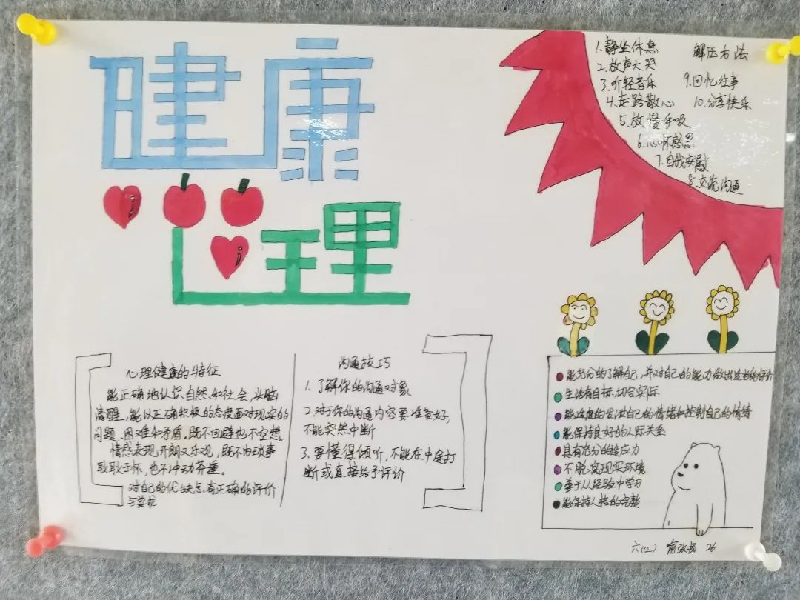 健康
心理
1.静坐休息
2.放声大哭
3.听轻音乐
4.走路散心
5.放慢呼吸
6.心怀感恩
7.自我安慰
8.交流沟通
解压方法
9.回忆往事
10.分享快乐
心理健康的特征
能正确地认识自然,如社会,头脑
清醒,能以正确积极的态度面对现实的
问题、困难和矛盾,既不回避也不空想。
情感表现开朗又乐观,既不为琐事
耿耿于怀,也不冲动莽撞。
对自己的优缺点有正确的评价
沟通技巧
1.了解你的沟通对象
2.对于你的沟通内容要准备好,
不能突然中断
3.要懂得倾听,不能在中途打
断或直接给予评价
能充分的了解自己,并对自己的能力做出适当的评价
生活有目标,切合实际
能适度的发泄自己的情绪和控制自己的情绪
能保持良好的人际关系
具有充分的适应力
不脱离现实环境
善于从经验中学习
能保持人格的完整
六(2) 26